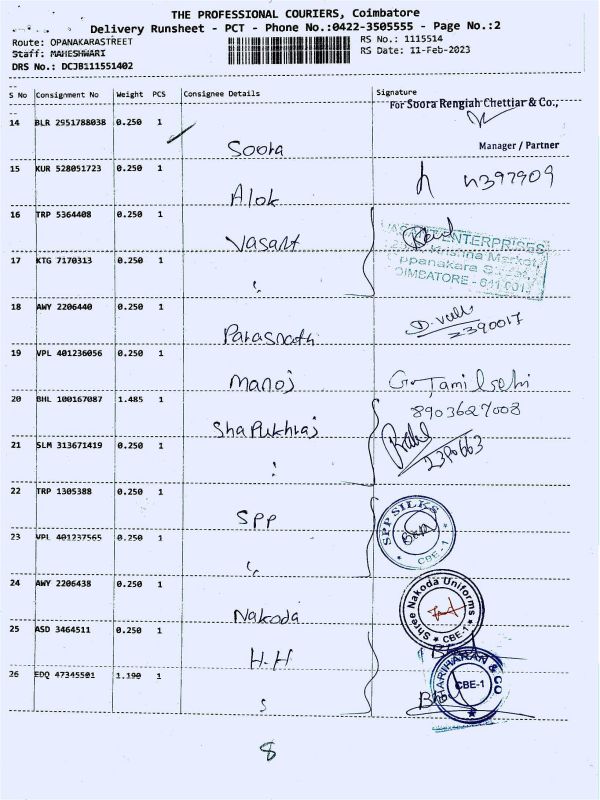 THE PROFESSIONAL COURIERS, Coimbatore
Delivery Runsheet - PCT - Phone No.:0422-3505555 - Page No.:2
Route: OPANAKARASTREET
Staff: MAHESHWARI
DRS No.: DCJB111551402
RS No.: 1115514
RS Date: 11-Feb-2023
S No Consignment No Weight PCS Consignee Details Signature
For Soora Rengiah Chettiar & Co.,
14 BLR 2951788038 0.250 1
Soora
Manager / Partner
15 KUR 528051723 0.250 1
Alok
16 TRP 5364408 0.250 1
Vasant
ENTERPRISES
Krishna Market,
17 KTG 7170313 0.250 1
18 AWY 2206440 0.250 1
Parasnath
2390017
19 VPL 401236056 0.250 1
Manoj
20 BHL 100167087 1.485 1
8903627008
Sha Pukhraj
21 SLM 313671419 0.250 1
22 TRP 1305388 0.250 1
SPP
SPP SILKS
CBE - 1
23 VPL 401237565 0.250 1
24 AWY 2206438 0.250 1
Nakoda
Shree Nakoda Uniforms
CBE-1
25 ASD 3464511 0.250 1
H.H
HARIHARAN & CO
CBE-1
26 EDQ 47345501 1.190 1
8